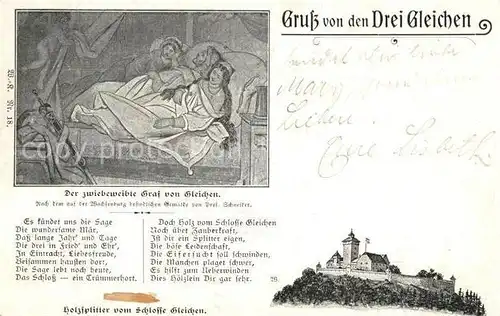 Gruß von den Drei Gleichen
W.-R. Nr. 18.
Der zwiebeweibte Graf von Gleichen.
Nach dem auf der Wachsenburg befindlichen Gemälde von Prof. Schneider.
Es kündet uns die Sage
Die wundersame Mär,
Daß lange Jahr' und Tage
Die drei in Fried' und Ehr',
In Eintracht, Liebesfreude,
Beisammen hausten dort,
Die Sage lebt noch heute,
Das Schloß — ein Trümmerhort.
Doch Holz vom Schlosse Gleichen
Noch über Zauberkraft,
Ist dir ein Splitter eigen,
Die böse Leidenschaft,
Die Eifersucht soll schwinden,
Die Manchen plaget schwer,
Es hilft zum Ueberwinden
Dies Hölzlein Dir gar sehr.
Holzsplitter vom Schlosse Gleichen.
Mary,
Lieben.
Eure Lisbeth